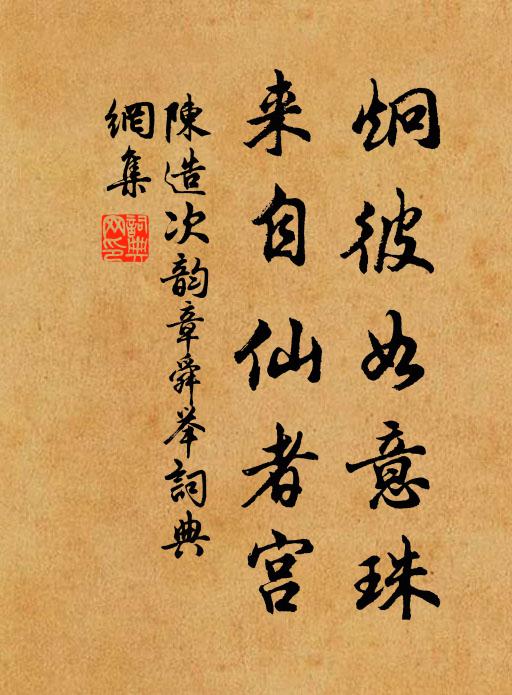 炯彼如意珠
来自仙者宫
陳造次韵章舜举詞典
網集
詞典網印